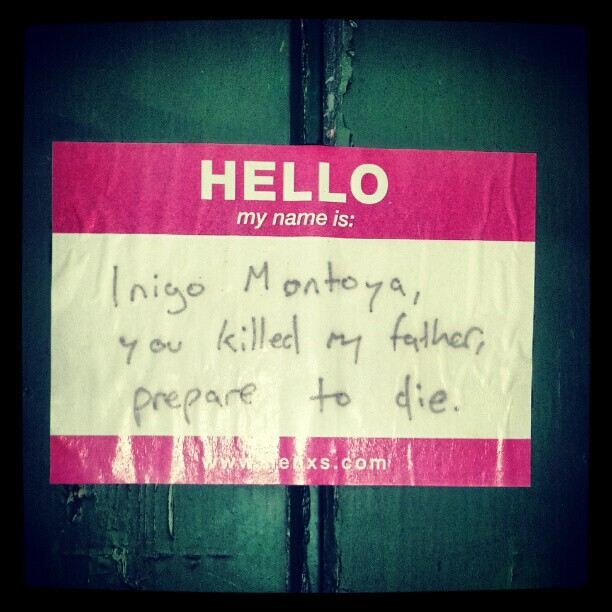 HELLO
my name is:
Inigo Montoya,
you killed my father,
prepare to die.